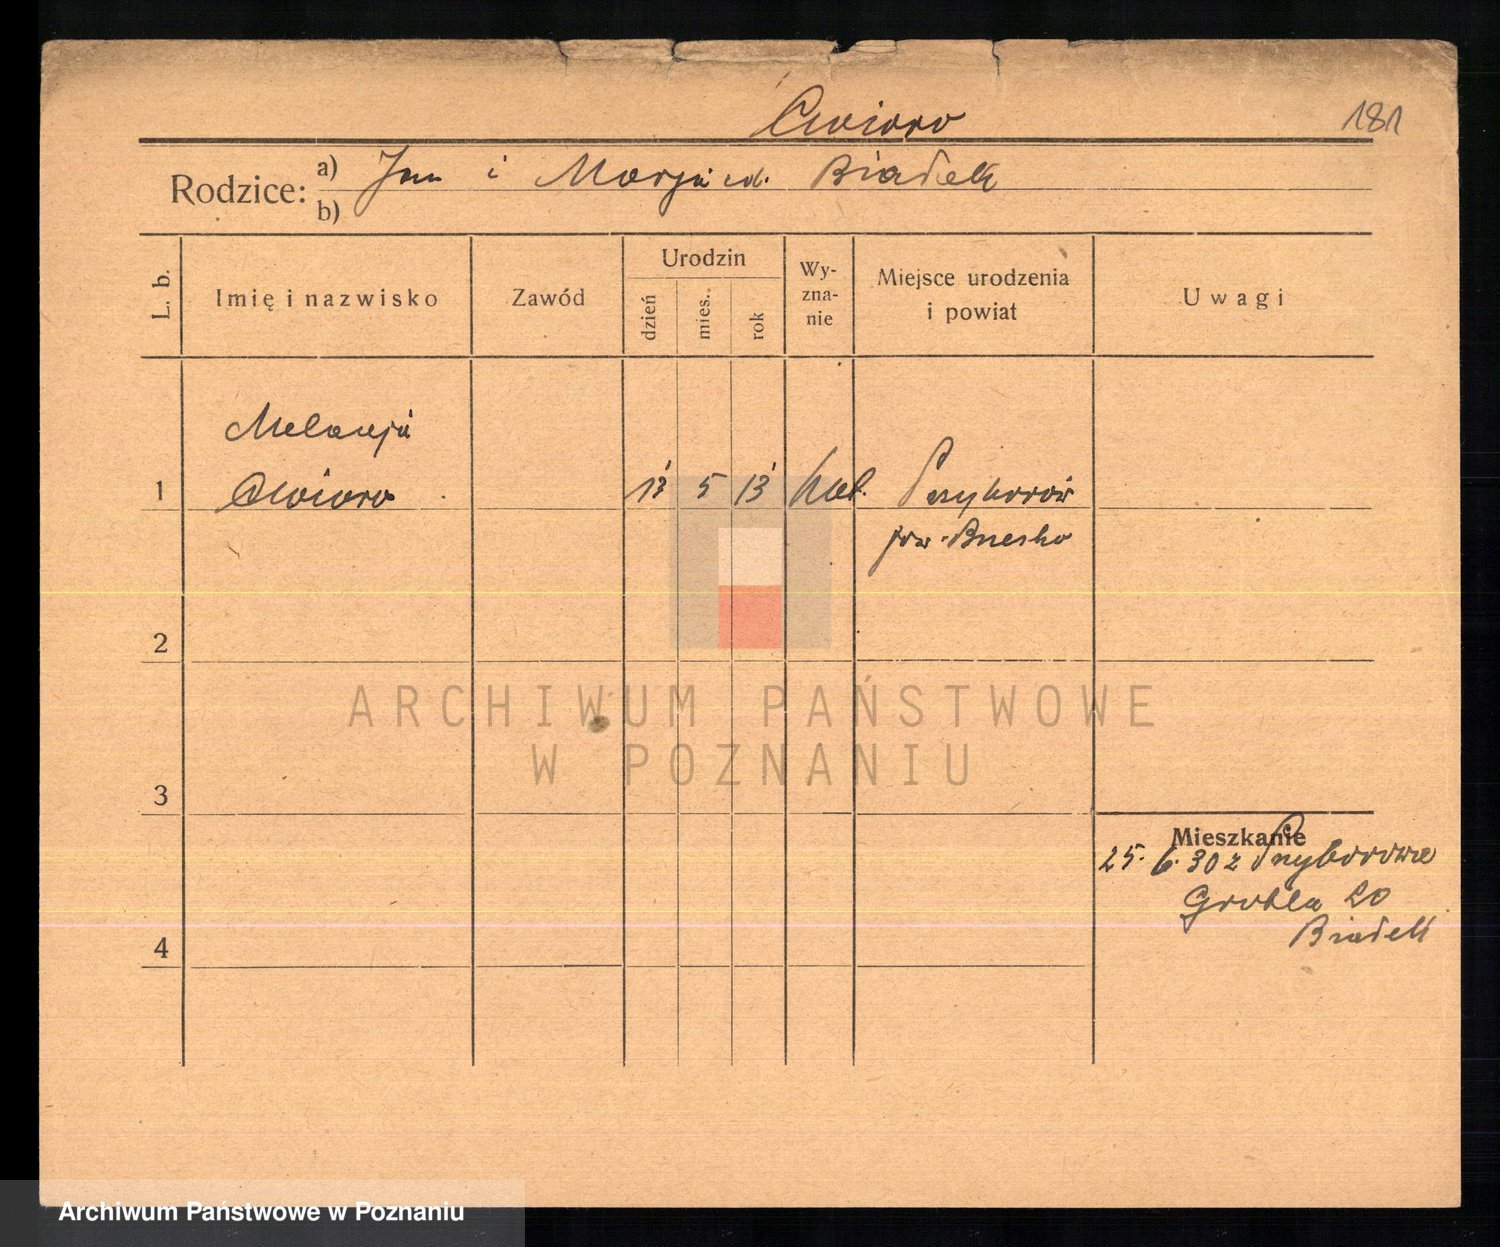 Ćwioro
181
Rodzice: a) Jan i Marja ed. Biadek
b)
L. b. Imię i nazwisko Zawód Urodzin dzień mies. rok Wy-zna-nie Miejsce urodzenia i powiat Uwagi
Melanja
1 Ćwioro 13 5 13 kat. Przyborów
pow. Brzesko
2
ARCHIWUM PAŃSTWOWE
W POZNANIU
3
Mieszkanie
25. 6. 30 z Przyborowa
Grobla 20
Biadek
4
Archiwum Państwowe w Poznaniu